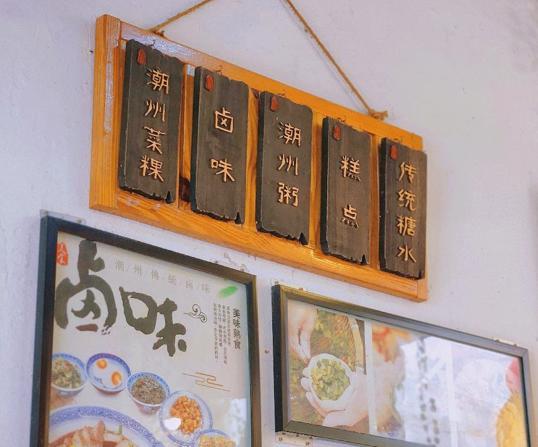 潮州菜粿
卤味
潮州粥
糕点
传统糖水
潮/州/傳/統/鹵/味
鹵味
美味熟食